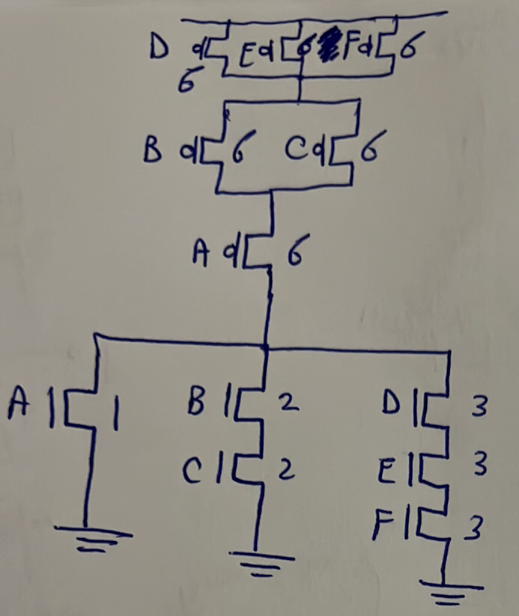 D E 6 F 6
6
B 6 C 6
A 6
A 1 B 2 D 3
C 2 E 3
F 3